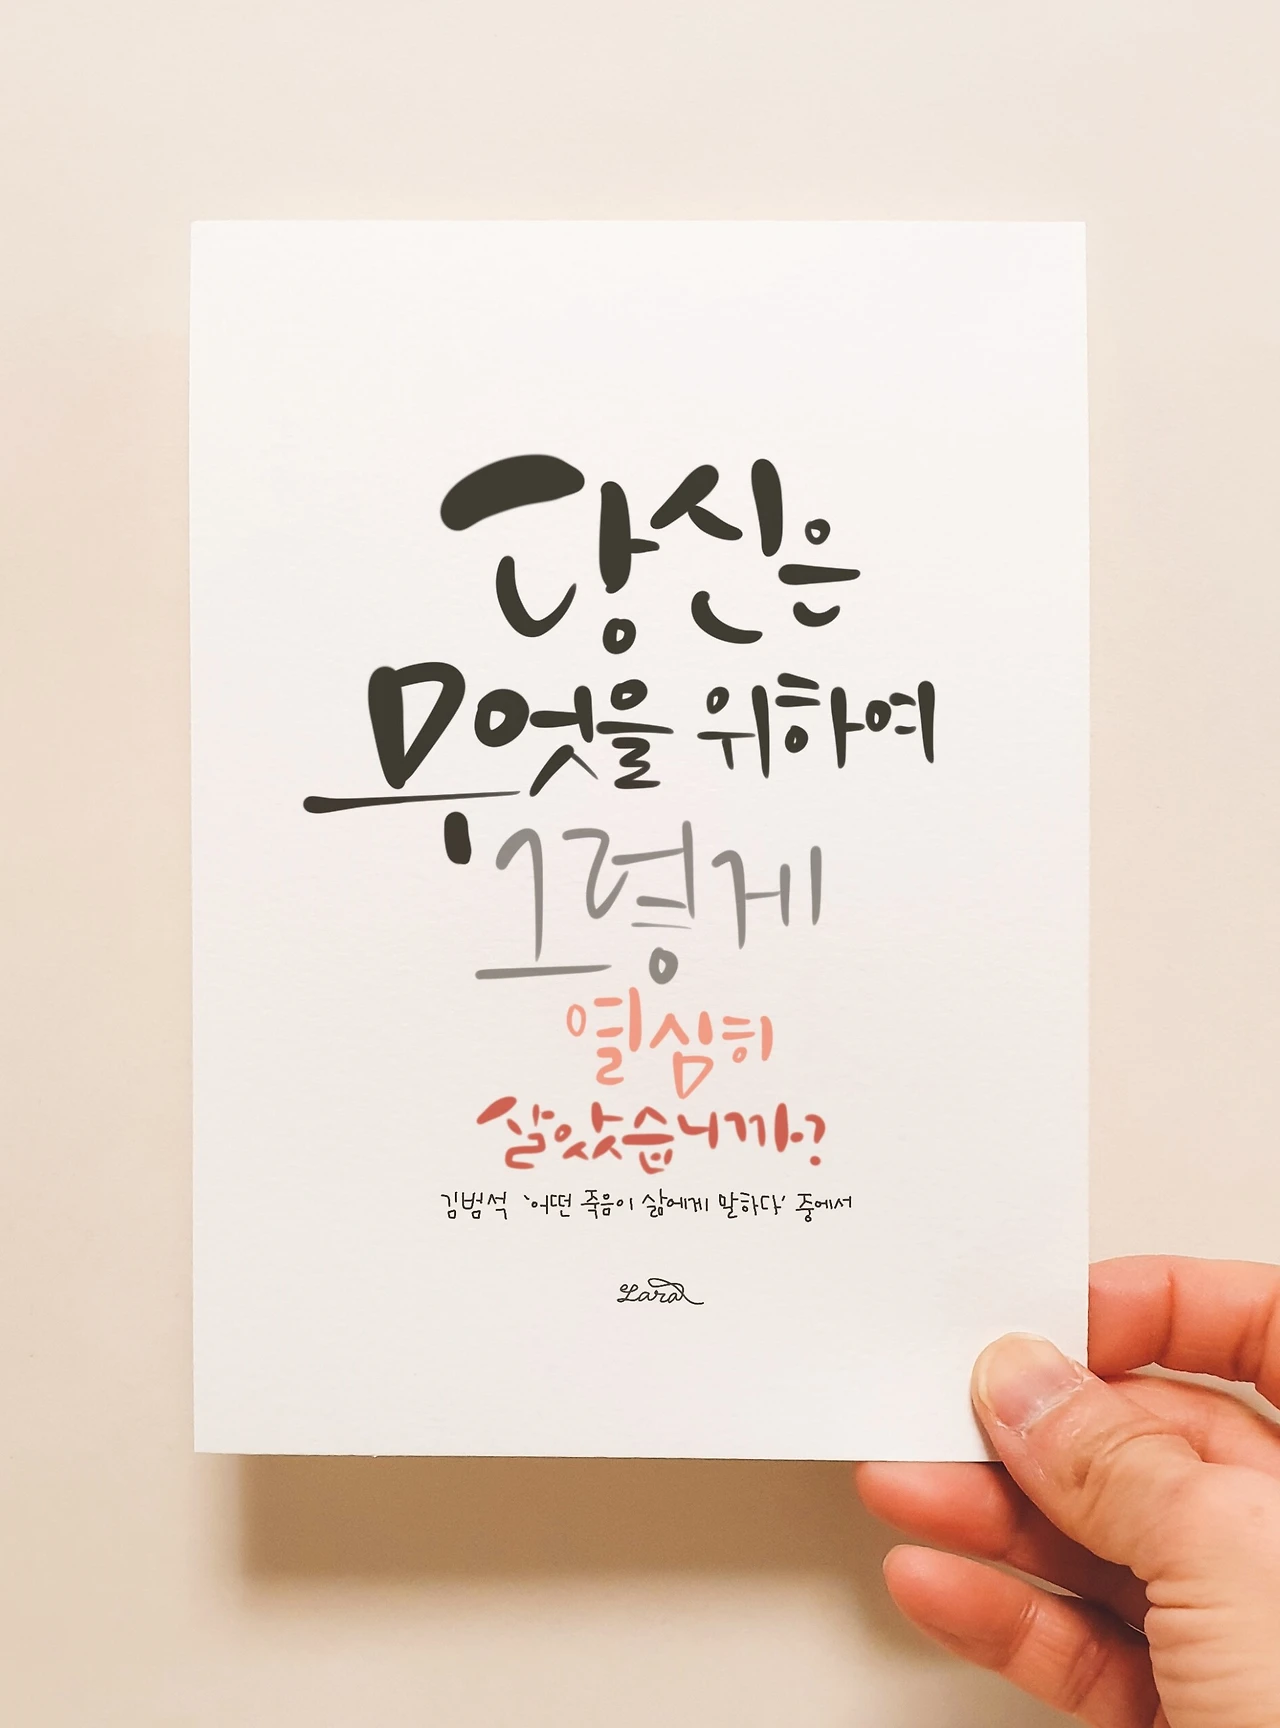 당신은
무엇을 위하여
그렇게
열심히
살았습니까?
김범석 '어떤 죽음이 삶에게 말하다' 중에서
Lara